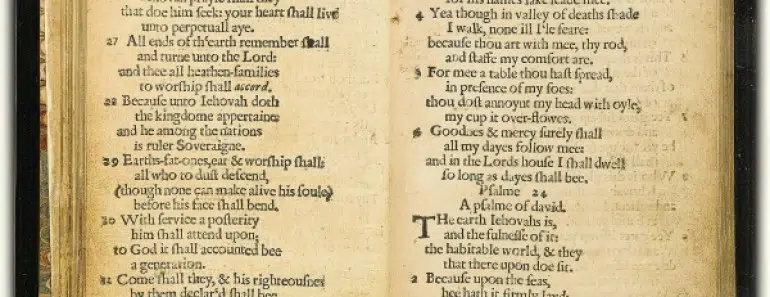 Iehovah prayſe ſhall they
that doe him ſeek: your heart ſhall live
unto perpetuall aye.
27 All ends of th'earth remember ſhall
and turne unto the Lord:
and thee all heathen-families
to worſhip ſhall accord.
28 Becauſe unto Iehovah doth
the kingdome appertaine:
and he among the nations
is ruler Soveraigne.
29 Earths-fat-ones, eat & worſhip ſhall:
all who to duſt deſcend,
(though none can make alive his ſoule)
before his face ſhall bend.
30 With ſervice a poſterity
him ſhall attend upon:
to God it ſhall accounted bee
a generation.
31 Come ſhall they, & his righteouſnes
by them declar'd ſhall bee
for his names ſake leade mee.
4 Yea though in valley of deaths ſhade
I walk, none ill I'le feare:
becauſe thou art with mee, thy rod,
and ſtaffe my comfort are.
5 For mee a table thou haſt ſpread,
in preſence of my foes:
thou doſt annoynt my head with oyle,
my cup it over-flowes.
6 Goodnes & mercy ſurely ſhall
all my dayes follow mee:
and in the Lords houſe I ſhall dwell
ſo long as dayes ſhall bee.
Pſalme 24
A pſalme of david.
THe earth Iehovahs is,
and the fulneſſe of it:
the habitable world, & they
that there upon doe ſit.
2 Becauſe upon the ſeas,
hee hath it firmly layd: